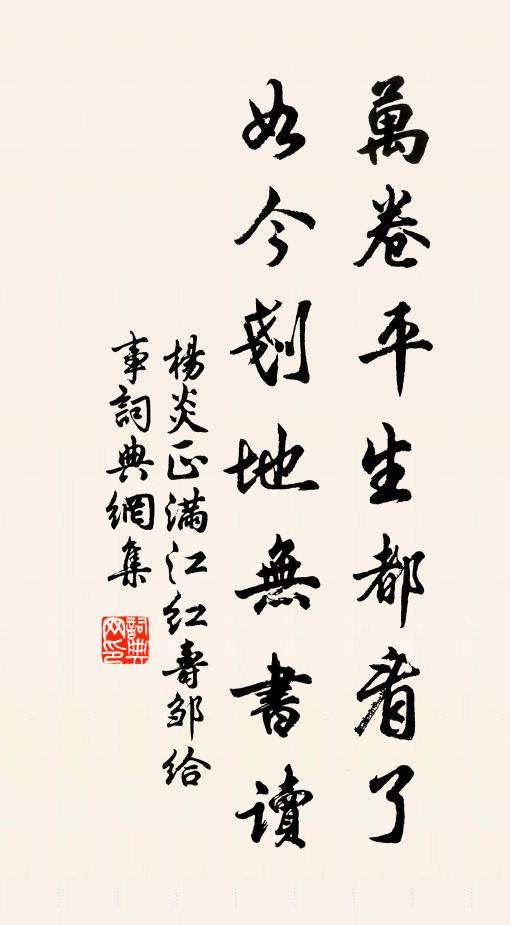 萬卷平生都看了
如今剗地無書讀
楊炎正滿江红壽邹给
事詞典網集
詞典网印